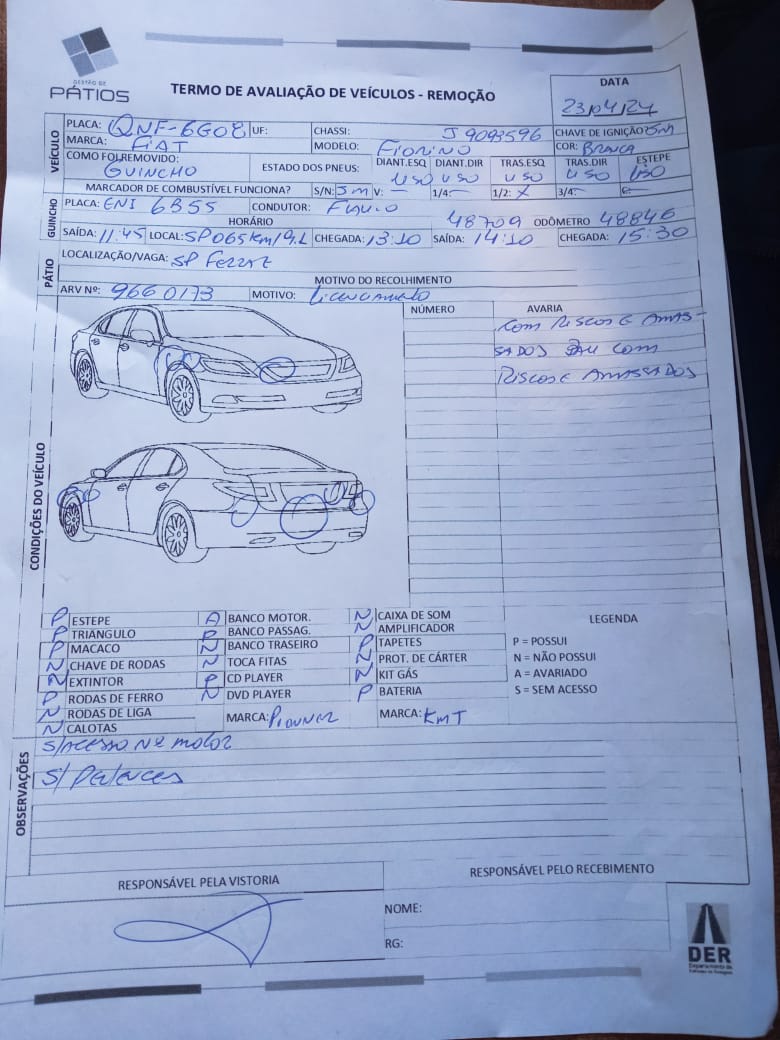 GESTÃO DE
PÁTIOS
TERMO DE AVALIAÇÃO DE VEÍCULOS - REMOÇÃO
DATA
23/04/24
VEÍCULO
PLACA: QNF-6G08 UF: CHASSI: J9093596 CHAVE DE IGNIÇÃO Sim
MARCA: FIAT MODELO: FIORINO COR: BRANCA
COMO FOI REMOVIDO: GUINCHO ESTADO DOS PNEUS: DIANT.ESQ USO DIANT.DIR USO TRAS.ESQ USO TRAS.DIR USO ESTEPE USO
MARCADOR DE COMBUSTÍVEL FUNCIONA? S/N: Sim V: — 1/4: — 1/2: X 3/4: —
GUINCHO
PLACA: ENI 6B55 CONDUTOR: FLAVIO 48709 ODÔMETRO 48846
HORÁRIO
SAÍDA: 11:45 LOCAL: SP065 Km/9.L CHEGADA: 13:10 SAÍDA: 14:10 CHEGADA: 15:30
PÁTIO
LOCALIZAÇÃO/VAGA: SP FERRAZ
MOTIVO DO RECOLHIMENTO
ARV Nº: 9660173 MOTIVO: Licenciamento
CONDIÇÕES DO VEÍCULO
NÚMERO AVARIA
COM RISCOS E AMAS-
SADOS BAU COM
RISCOS E AMASSADOS
P ESTEPE A BANCO MOTOR. N CAIXA DE SOM
P TRIÂNGULO P BANCO PASSAG. N AMPLIFICADOR
P MACACO N BANCO TRASEIRO P TAPETES
N CHAVE DE RODAS N TOCA FITAS N PROT. DE CÁRTER
N EXTINTOR P CD PLAYER N KIT GÁS
P RODAS DE FERRO N DVD PLAYER P BATERIA
N RODAS DE LIGA MARCA: PIOUNER MARCA: KMT
N CALOTAS
LEGENDA
P = POSSUI
N = NÃO POSSUI
A = AVARIADO
S = SEM ACESSO
OBSERVAÇÕES
S/ACESSO Nº MOTOR
S/
RESPONSÁVEL PELA VISTORIA
RESPONSÁVEL PELO RECEBIMENTO
NOME:
RG:
DER
Departamento de
Estradas de Rodagem